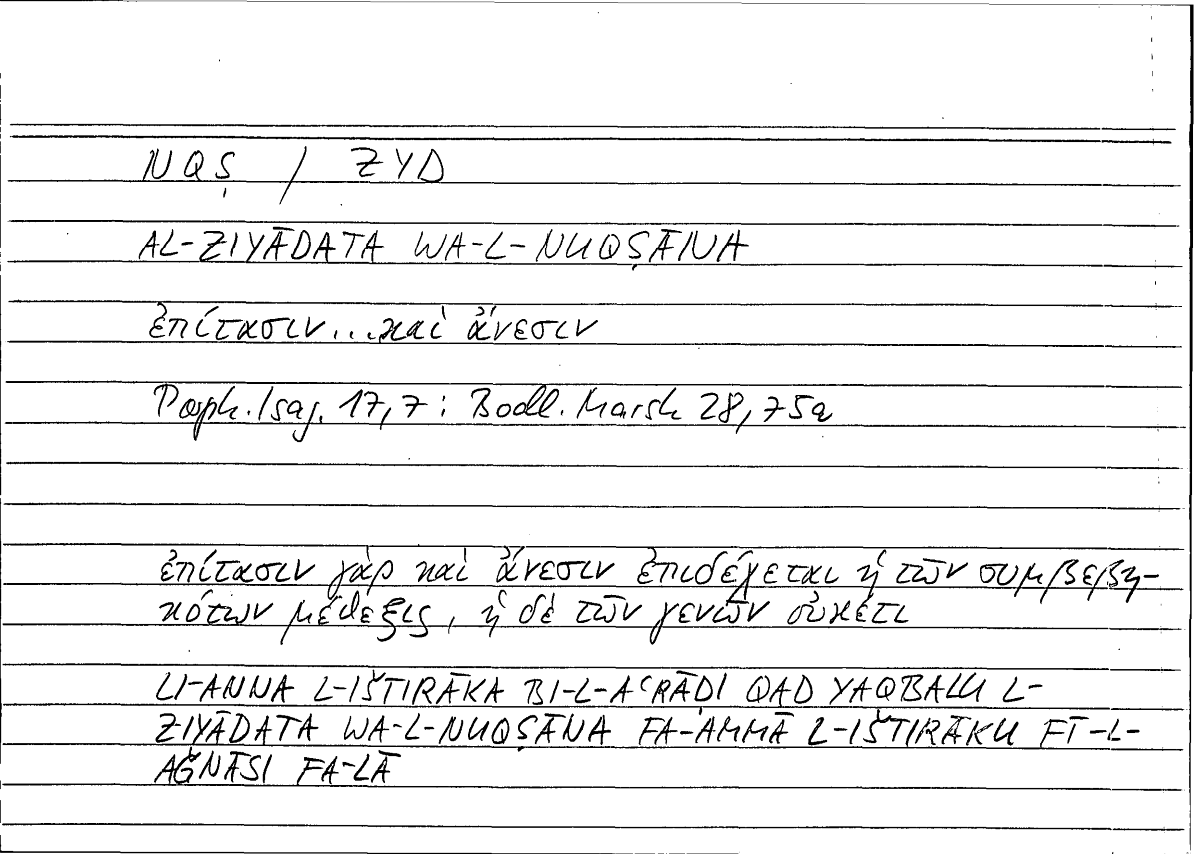 NQṢ / ZYD
AL-ZIYĀDATA WA-L-NUQṢĀNA
ἐπίτασιν...καὶ ἄνεσιν
Porph. Isag. 17,7 : Bodl. Marsh 28,75a
ἐπίτασιν γὰρ καὶ ἄνεσιν ἐπιδέχεται ἡ τῶν συμβεβη-
κότων μέθεξις, ἡ δὲ τῶν γενῶν οὐκέτι
LI-ANNA L-IŠTIRĀKA BI-L-AʿRĀDI QAD YAQBALU L-
ZIYĀDATA WA-L-NUQṢĀNA FA-AMMĀ L-IŠTIRĀKU FĪ-L-
AǦNĀSI FA-LĀ